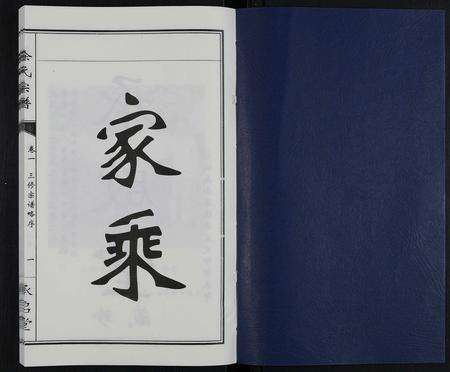 家乘
氏宗譜
卷一 三修宗谱略序 一
堂